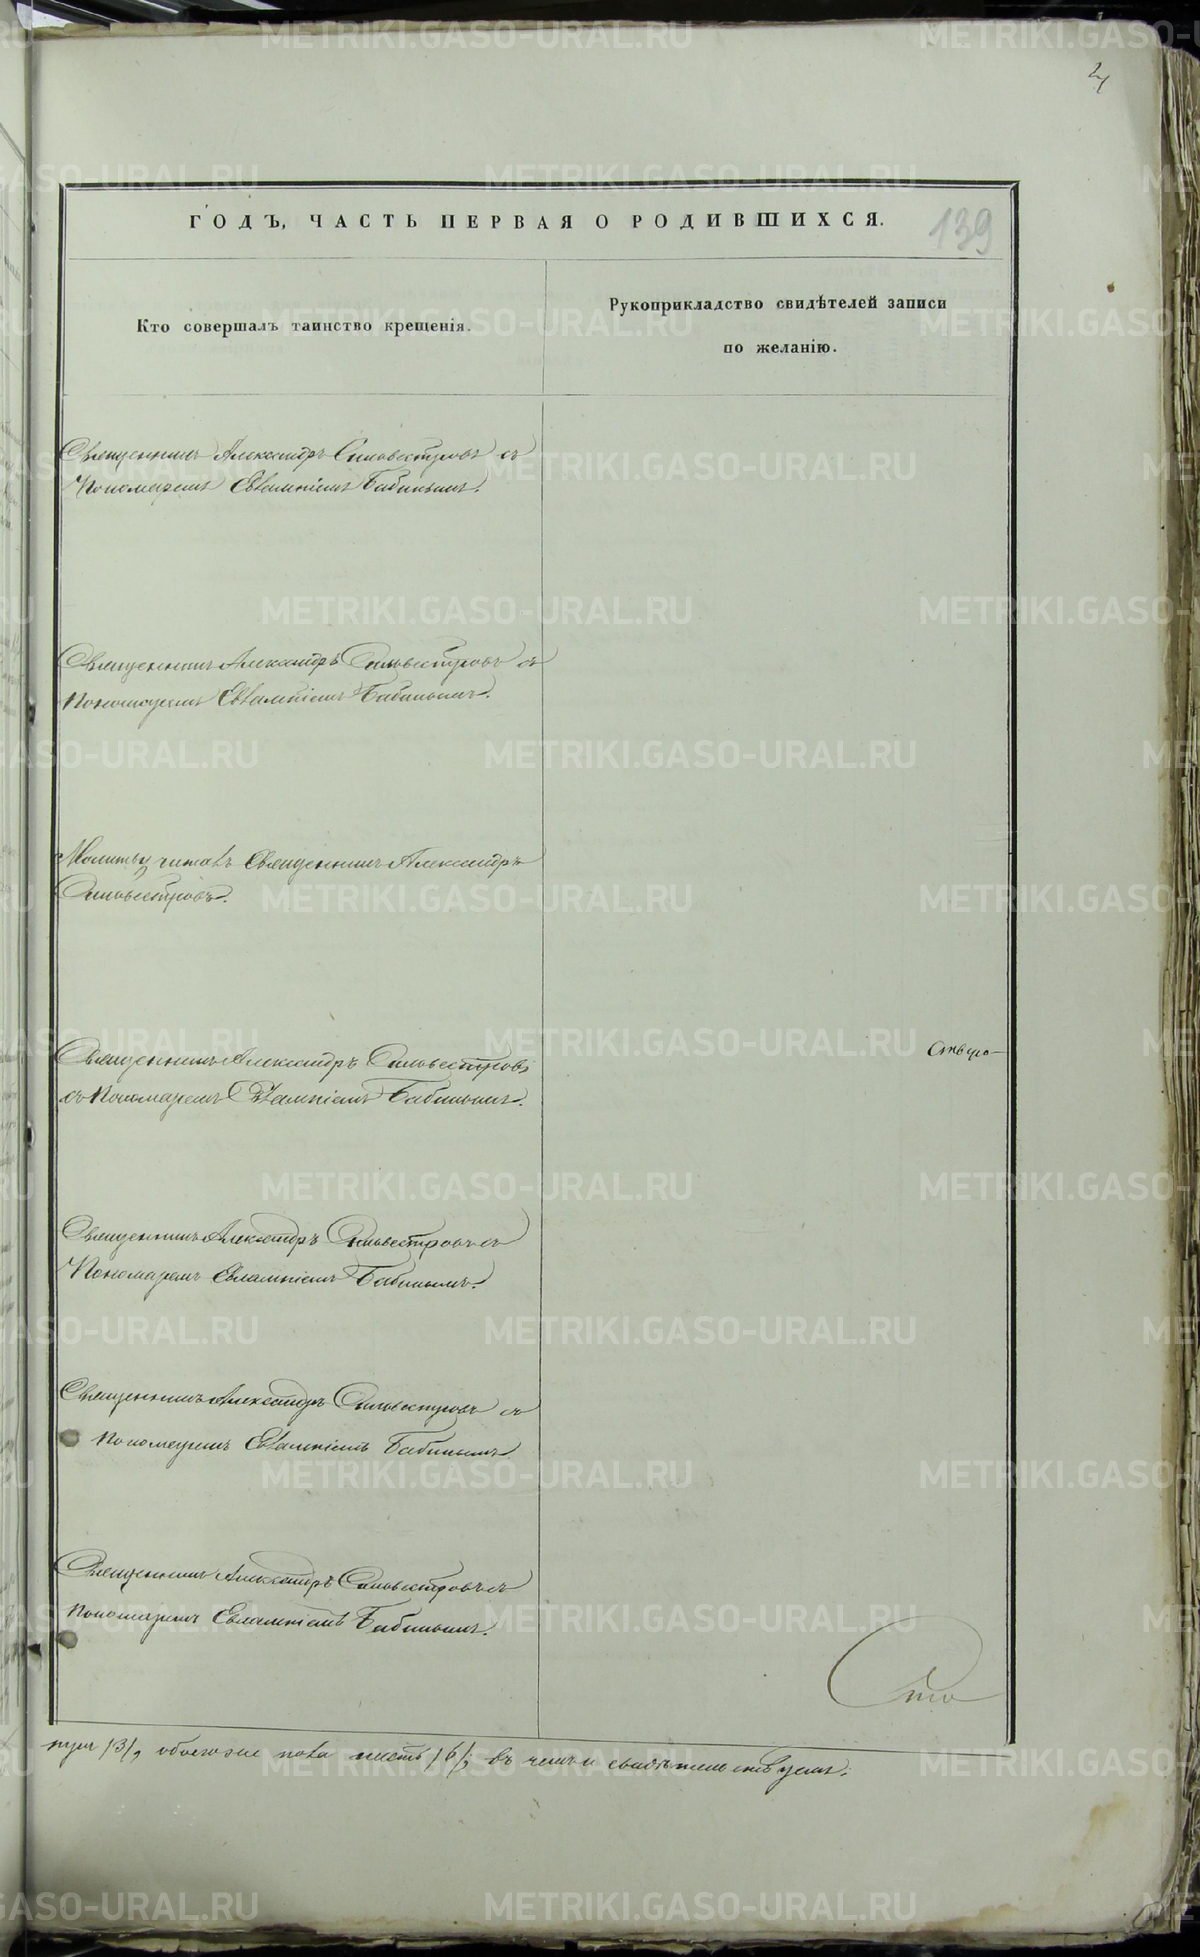 4
ГОДЪ, ЧАСТЬ ПЕРВАЯ О РОДИВШИХСЯ.
139
Кто совершалъ таинство крещенія.
Рукоприкладство свидѣтелей записи
по желанію.
Священникъ Александръ Сильвестровъ съ
Пономаремъ Евлампіемъ Бабинымъ.
Священникъ Александръ Сильвестровъ съ
Пономаремъ Евлампіемъ Бабинымъ.
Молитву читалъ Священникъ Александръ
Сильвестровъ.
Священникъ Александръ Сильвестровъ
съ Пономаремъ Евлампіемъ Бабинымъ.
Священникъ Александръ Сильвестровъ съ
Пономаремъ Евлампіемъ Бабинымъ.
Священникъ Александръ Сильвестровъ съ
Пономаремъ Евлампіемъ Бабинымъ
Священникъ Александръ Сильвестровъ съ
Пономаремъ Евлампіемъ Бабинымъ.
три /3/, обоего же пола шесть /6/; въ чемъ и свидѣтельствуемъ:
METRIKI.GASO-URAL.RU